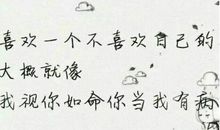 喜欢一个不喜欢自己的
大概就像
我视你如命你当我有病